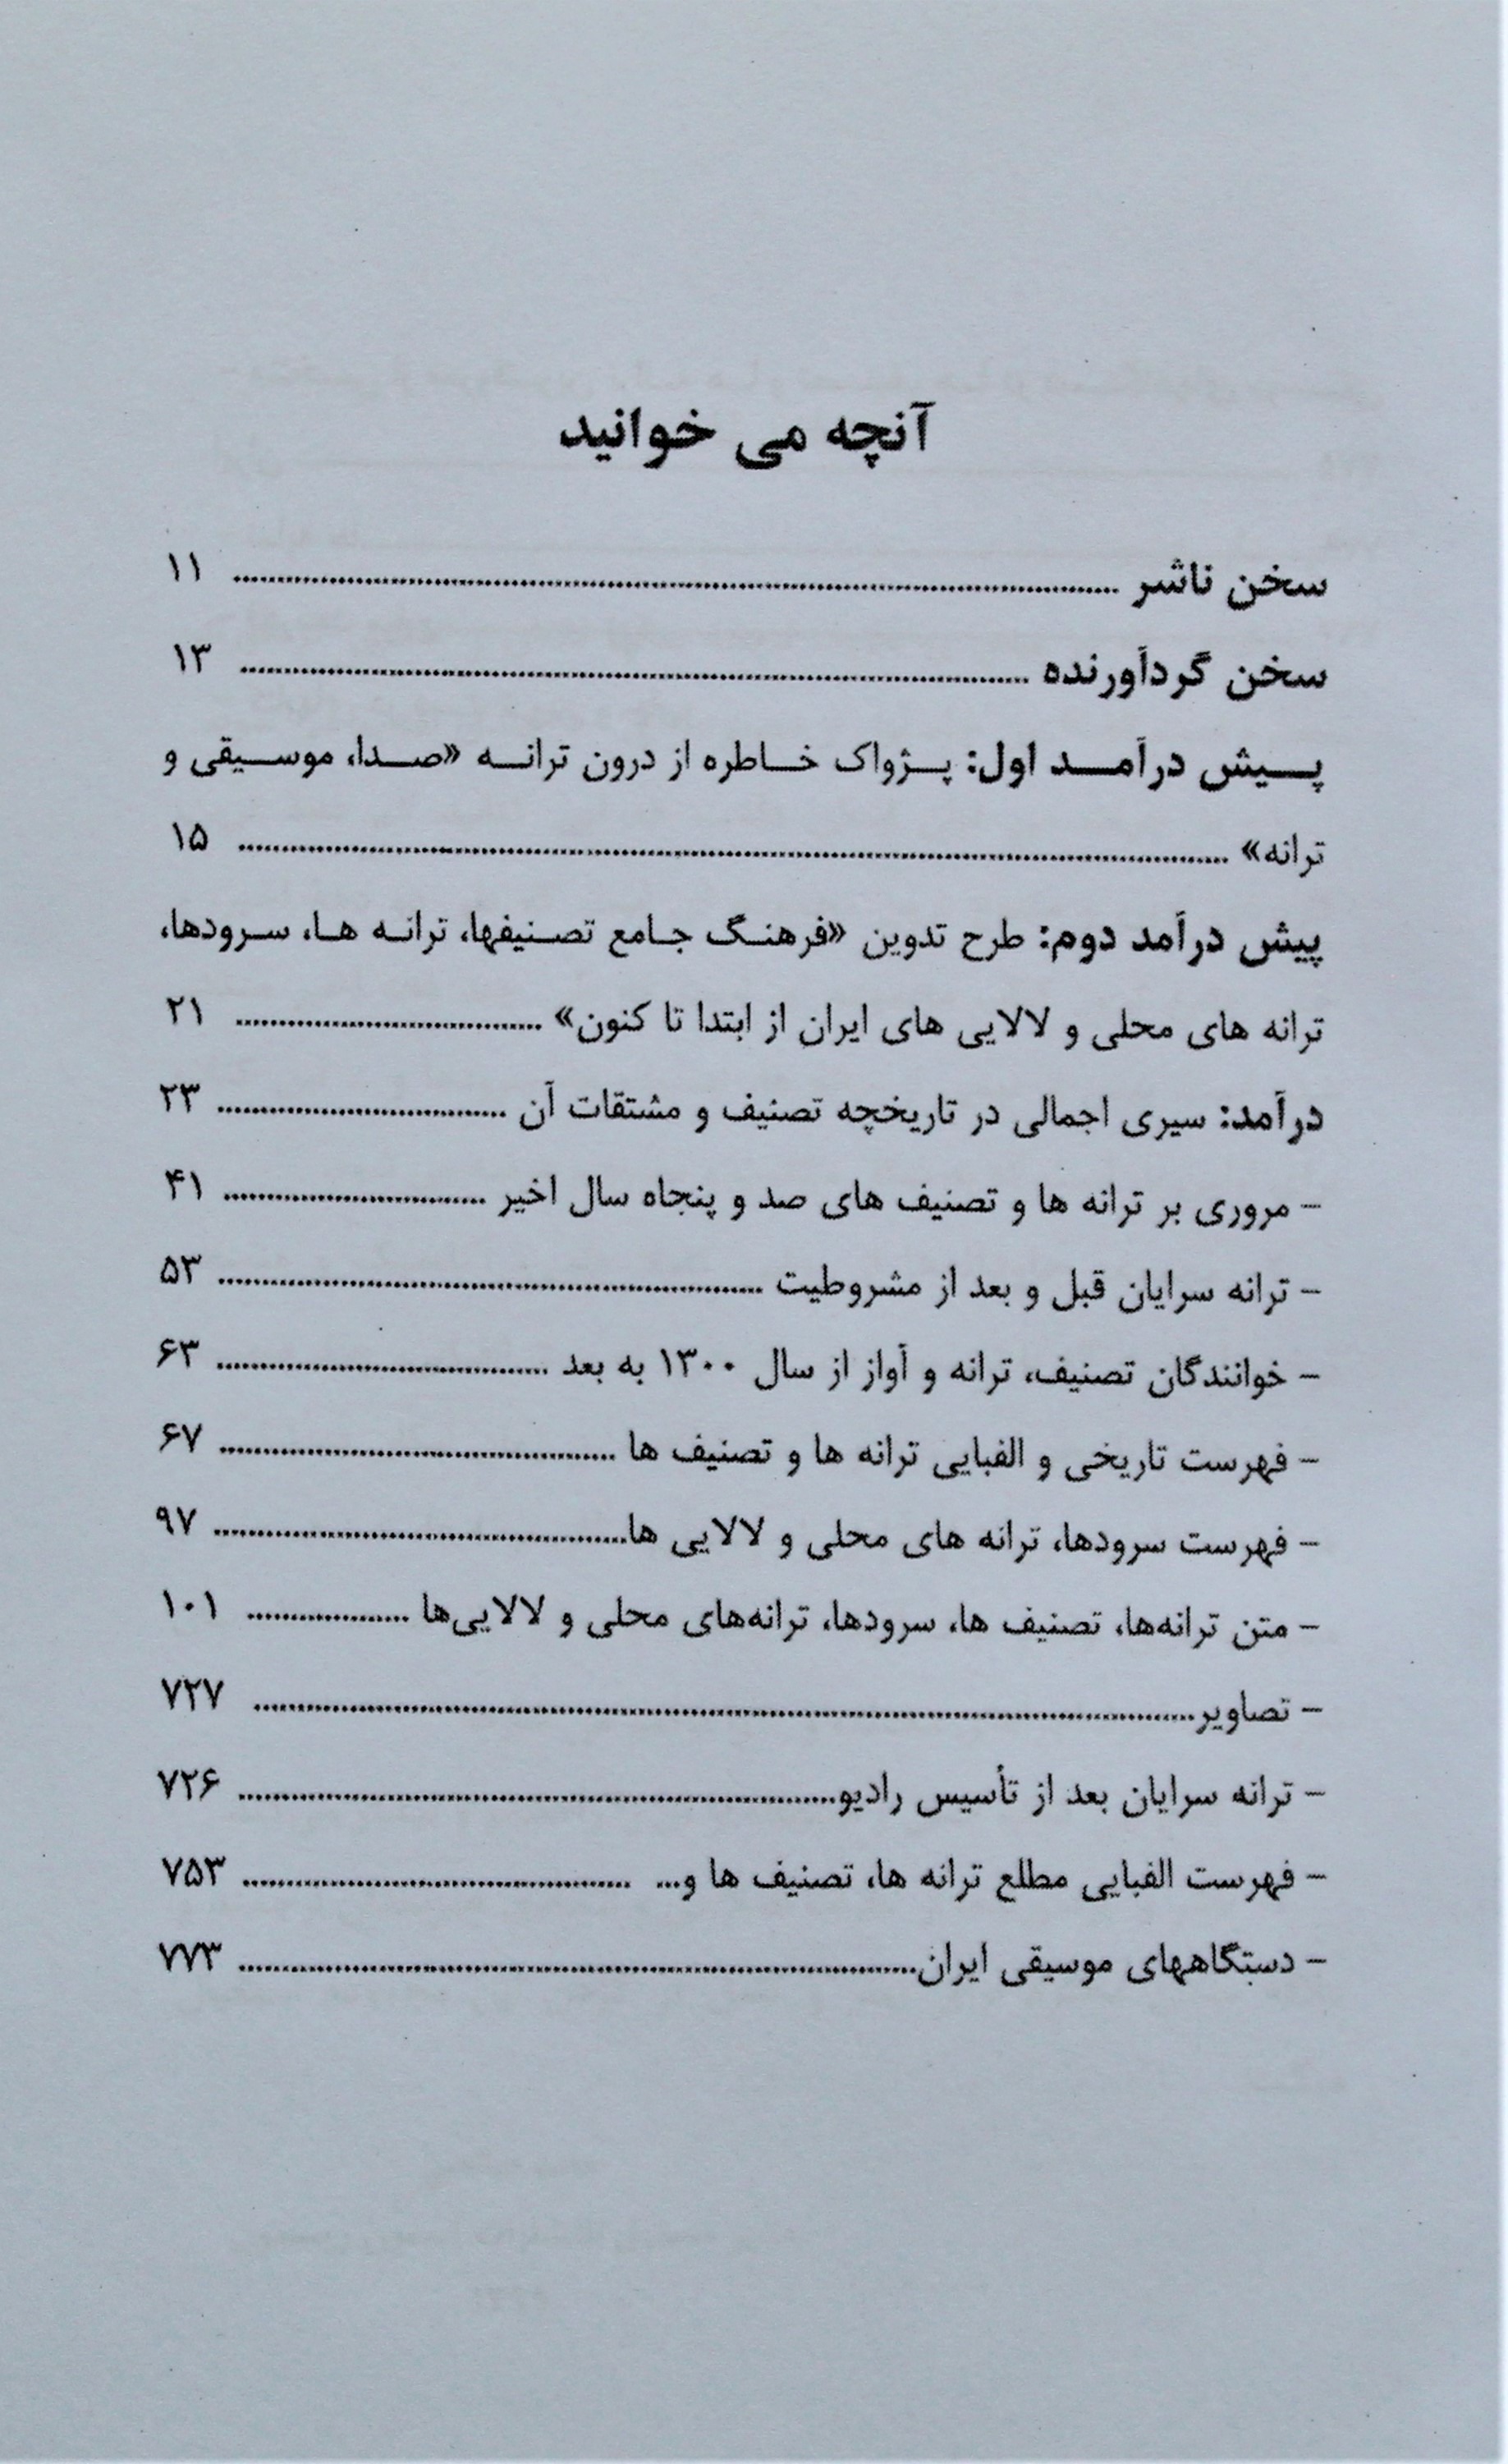 آنچه می خوانید
سخن ناشر ........................................ ۱۱
سخن گردآورنده ........................................ ۱۳
پیش درآمد اول: پژواک خاطره از درون ترانه «صدا، موسیقی و
ترانه» ........................................ ۱۵
پیش درآمد دوم: طرح تدوین «فرهنگ جامع تصنیفها، ترانه ها، سرودها،
ترانه های محلی و لالایی های ایران از ابتدا تا کنون» .................... ۲۱
درآمد: سیری اجمالی در تاریخچه تصنیف و مشتقات آن .................... ۲۳
- مروری بر ترانه ها و تصنیف های صد و پنجاه سال اخیر .................... ۴۱
- ترانه سرایان قبل و بعد از مشروطیت .............................. ۵۳
- خوانندگان تصنیف، ترانه و آواز از سال ۱۳۰۰ به بعد .................... ۶۳
- فهرست تاریخی و الفبایی ترانه ها و تصنیف ها .................... ۶۷
- فهرست سرودها، ترانه های محلی و لالایی ها.................... ۹۷
- متن ترانه‌ها، تصنیف ها، سرودها، ترانه‌های محلی و لالایی‌ها ............ ۱۰۱
- تصاویر........................................ ۷۲۷
- ترانه سرایان بعد از تأسیس رادیو.............................. ۷۲۶
- فهرست الفبایی مطلع ترانه ها، تصنیف ها و... .................... ۷۵۳
- دستگاههای موسیقی ایران.............................. ۷۷۳